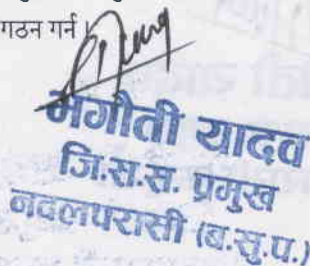 गठन गर्न ।
भगौती यादव
जि.स.स. प्रमुख
नवलपरासी (ब.सु.प.)